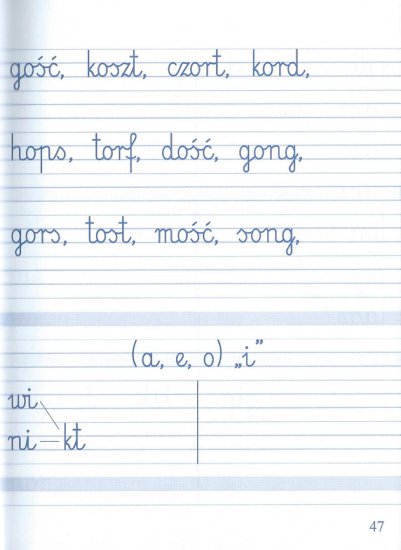 gość, koszt, czort, kord,
hops, torf, dość, gong,
gors, tost, mość, song,
(a, e, o) „i”
wi
ni — kt
47